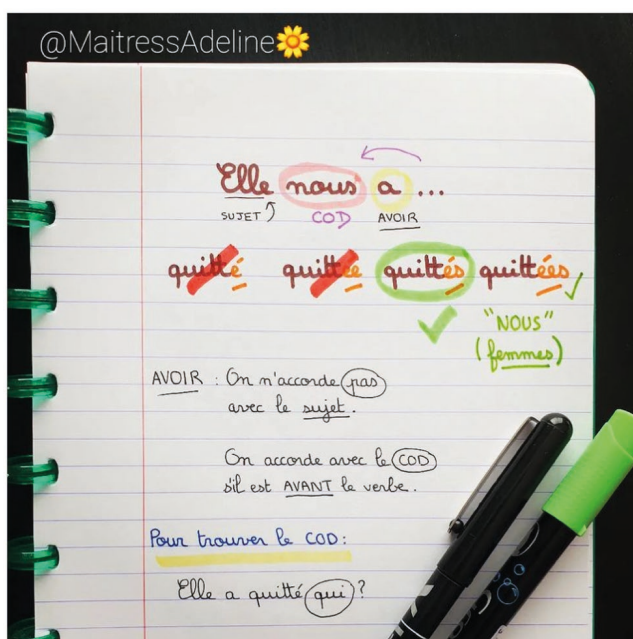 @MaitressAdeline🌼
Elle nous a ...
SUJET COD AVOIR
quitté quittée quittés quittées
"NOUS"
(femmes)
AVOIR : On n'accorde pas
avec le sujet.
On accorde avec le COD
s'il est AVANT le verbe.
Pour trouver le COD :
Elle a quitté qui ?